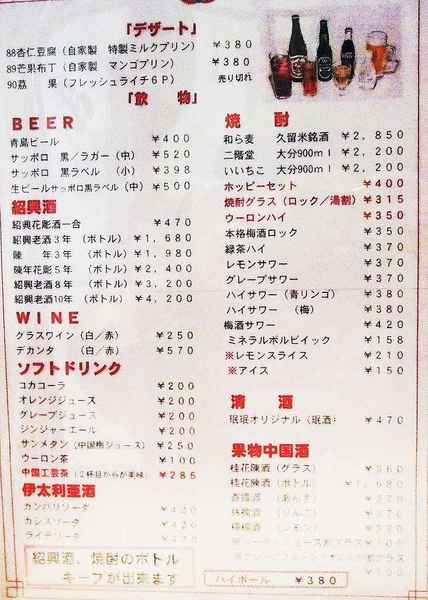 「デザート」
88杏仁豆腐（自家製　特製ミルクプリン）　￥３８０
89芒果布丁（自家製　マンゴプリン）　￥３８０
90茘　果（フレッシュライチ６Ｐ）　売り切れ
「飲　物」
ＢＥＥＲ
青島ビール　￥４００
サッポロ　黒／ラガー（中）　￥５２０
サッポロ　黒ラベル　（小）　￥３９８
生ビールサッポロ黒ラベル（中）　￥５００
紹興酒
紹興花彫酒一合　￥４７０
紹興老酒３年　（ボトル）　￥１，６８０
陳　年３年　（ボトル）　￥１，９８０
陳年花彫５年　（ボトル）　￥２，４００
紹興老酒８年　（ボトル）　￥３，２００
紹興老酒10年　（ボトル）　￥４，２００
ＷＩＮＥ
グラスワイン（白／赤）　￥２５０
デカンタ　（白／赤）　￥５７０
ソフトドリンク
コカコーラ　￥２００
オレンジジュース　￥２００
グレープジュース　￥２００
ジンジャーエール　￥２００
サンメタン（中国梅ジュース）　￥２５０
ウーロン茶　￥１００
中国工芸茶（２杯目からが美味）　￥２８５
伊太利亜酒
カンパリソーダ　￥４２０
カシスソーダ　￥４２０
ライチソーダ　￥４２０
紹興酒、焼酎のボトル
キープが出来ます
焼　酎
和ら麦　久留米銘酒　￥２，８５０
二階堂　大分900ｍｌ　￥２，２００
いいちこ　大分900ｍｌ　￥２，２００
ホッピーセット　￥４００
焼酎グラス（ロック／湯割）　￥３１５
ウーロンハイ　￥３５０
本格梅酒ロック　￥３５０
緑茶ハイ　￥３８０
レモンサワー　￥３８０
グレープサワー　￥３８０
ハイサワー（青リンゴ）　￥３８０
ハイサワー　（梅）　￥３８０
梅酒サワー　￥４２０
ミネラルボルビイック　￥１５８
※レモンスライス　￥２１０
※アイス　￥１５０
清　酒
珉珉オリジナル（珉酒）　￥４７０
果物中国酒
桂花陳酒（グラス）　￥３６０
桂花陳酒（ボトル）　￥１，６８０
（あんず）
ハイボール　￥３８０